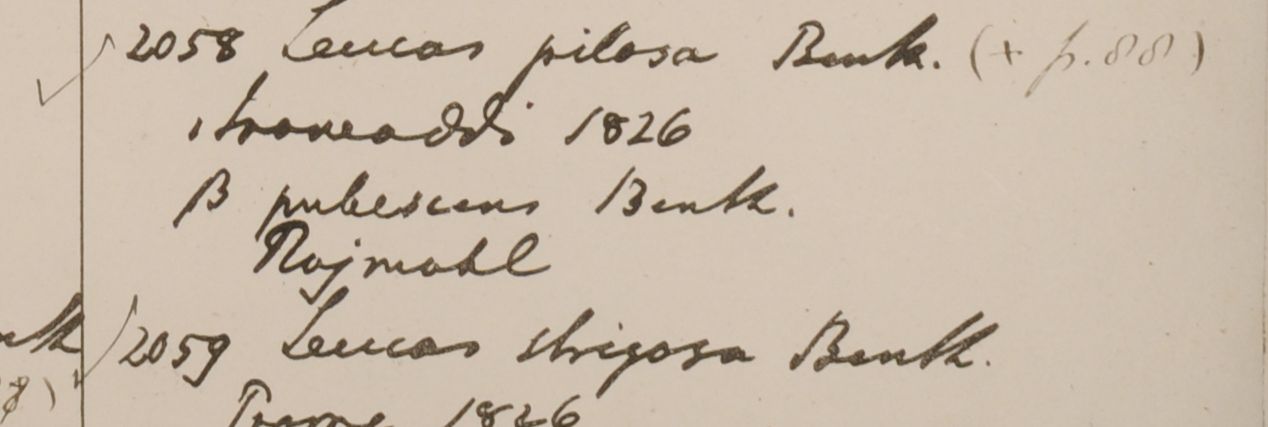 2058 Leucas pilosa Benth. (+ p. 88)
Irawaddi 1826
β pubescens Benth.
Rajmahl
2059 Leucas strigosa Benth.
Prome 1826